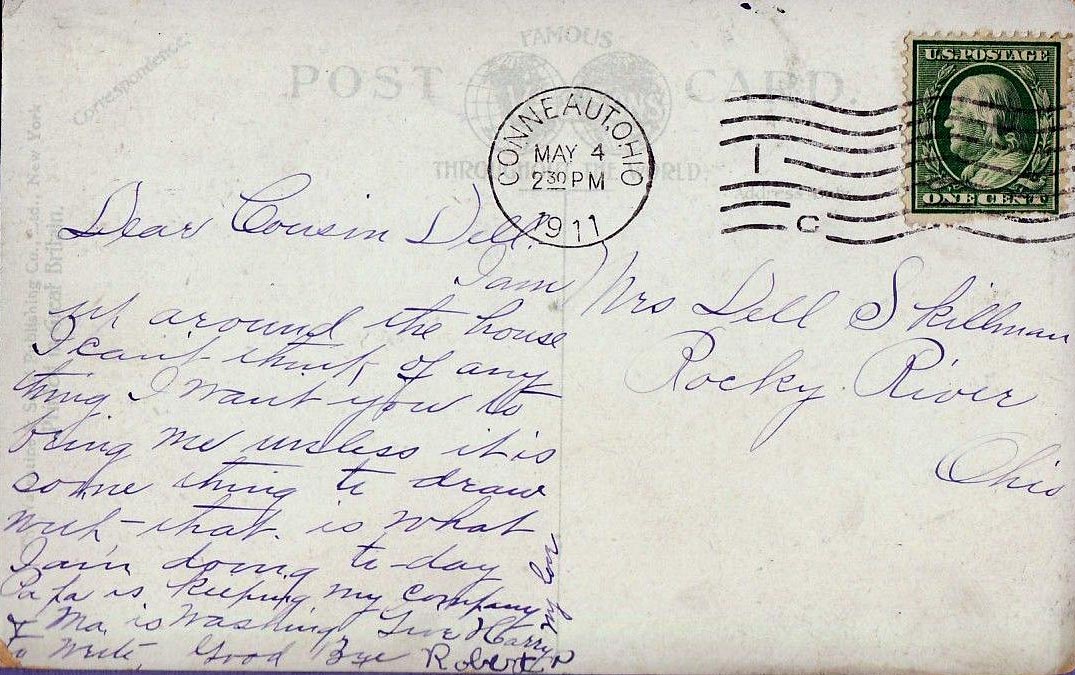 Correspondence.
FAMOUS
POST CARD
THROUGHOUT THE WORLD
CONNEAUT, OHIO
MAY 4
2 30 PM
1911
1
C
U.S. POSTAGE
ONE CENT
Dear Cousin Dell.
I am
up around the house
I can't think of any
thing I want you to
bring me unless it is
some thing to draw
with that is what
I am doing to-day
Papa is keeping my company
& Ma is washing Give Harry my love
to write, Good Bye Robert
Mrs Dell Skillman
Rocky River
Ohio
New York